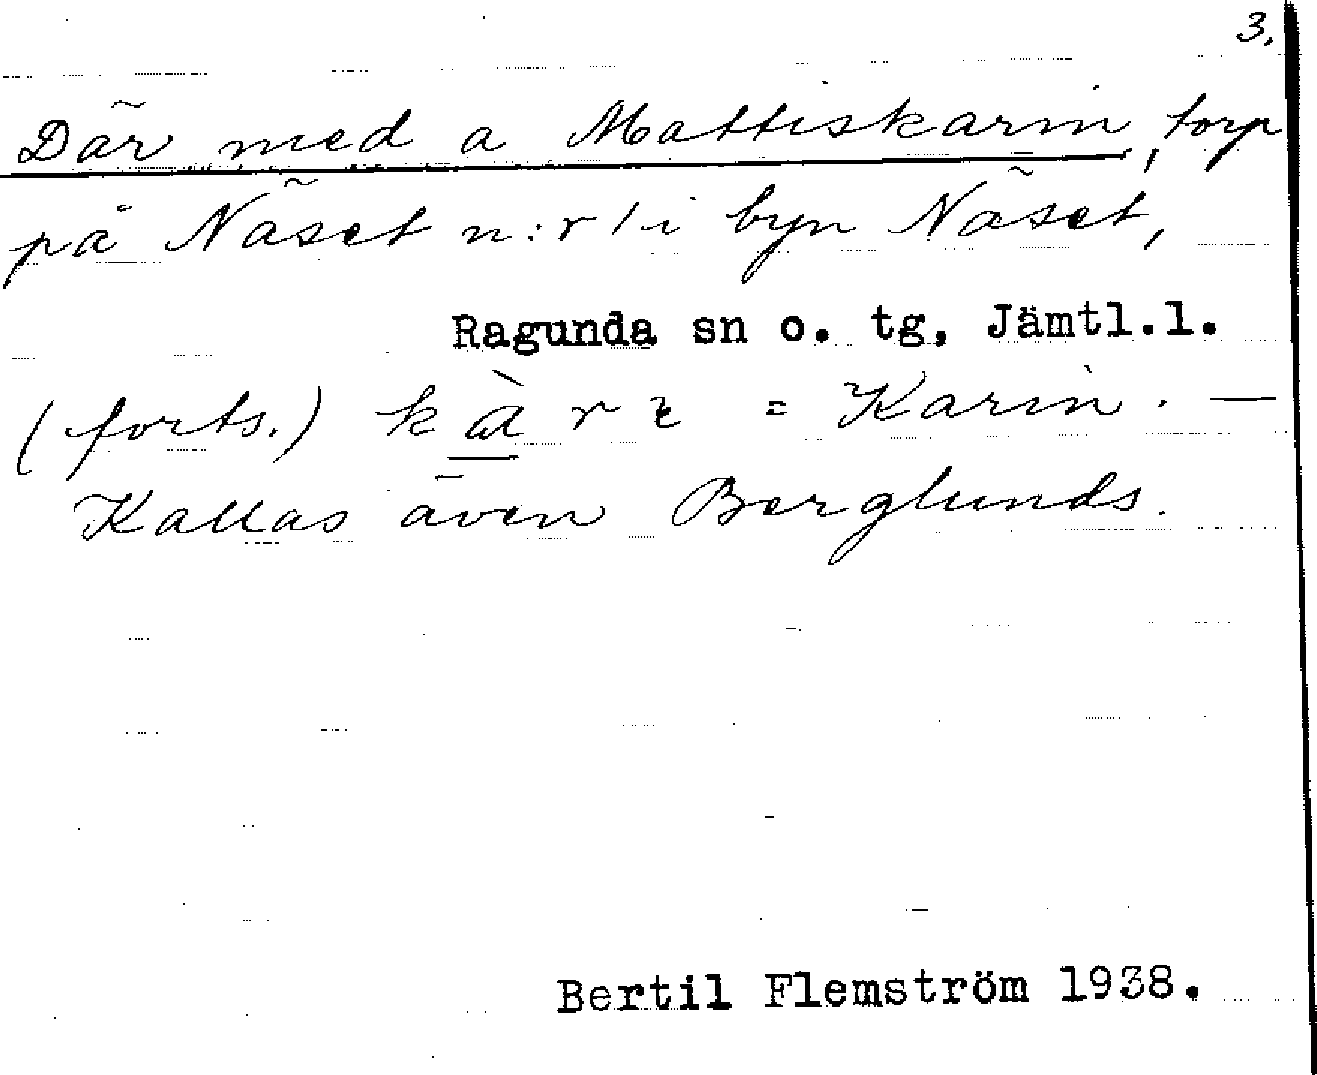 3.
Där med a Mattiskarin, torp
på Näset n:r 1 i byn Näset,
Ragunda sn o. tg, Jämtl.l.
(forts.) = Karin. —
Kallas även Berglunds.
Bertil Flemström 1938.